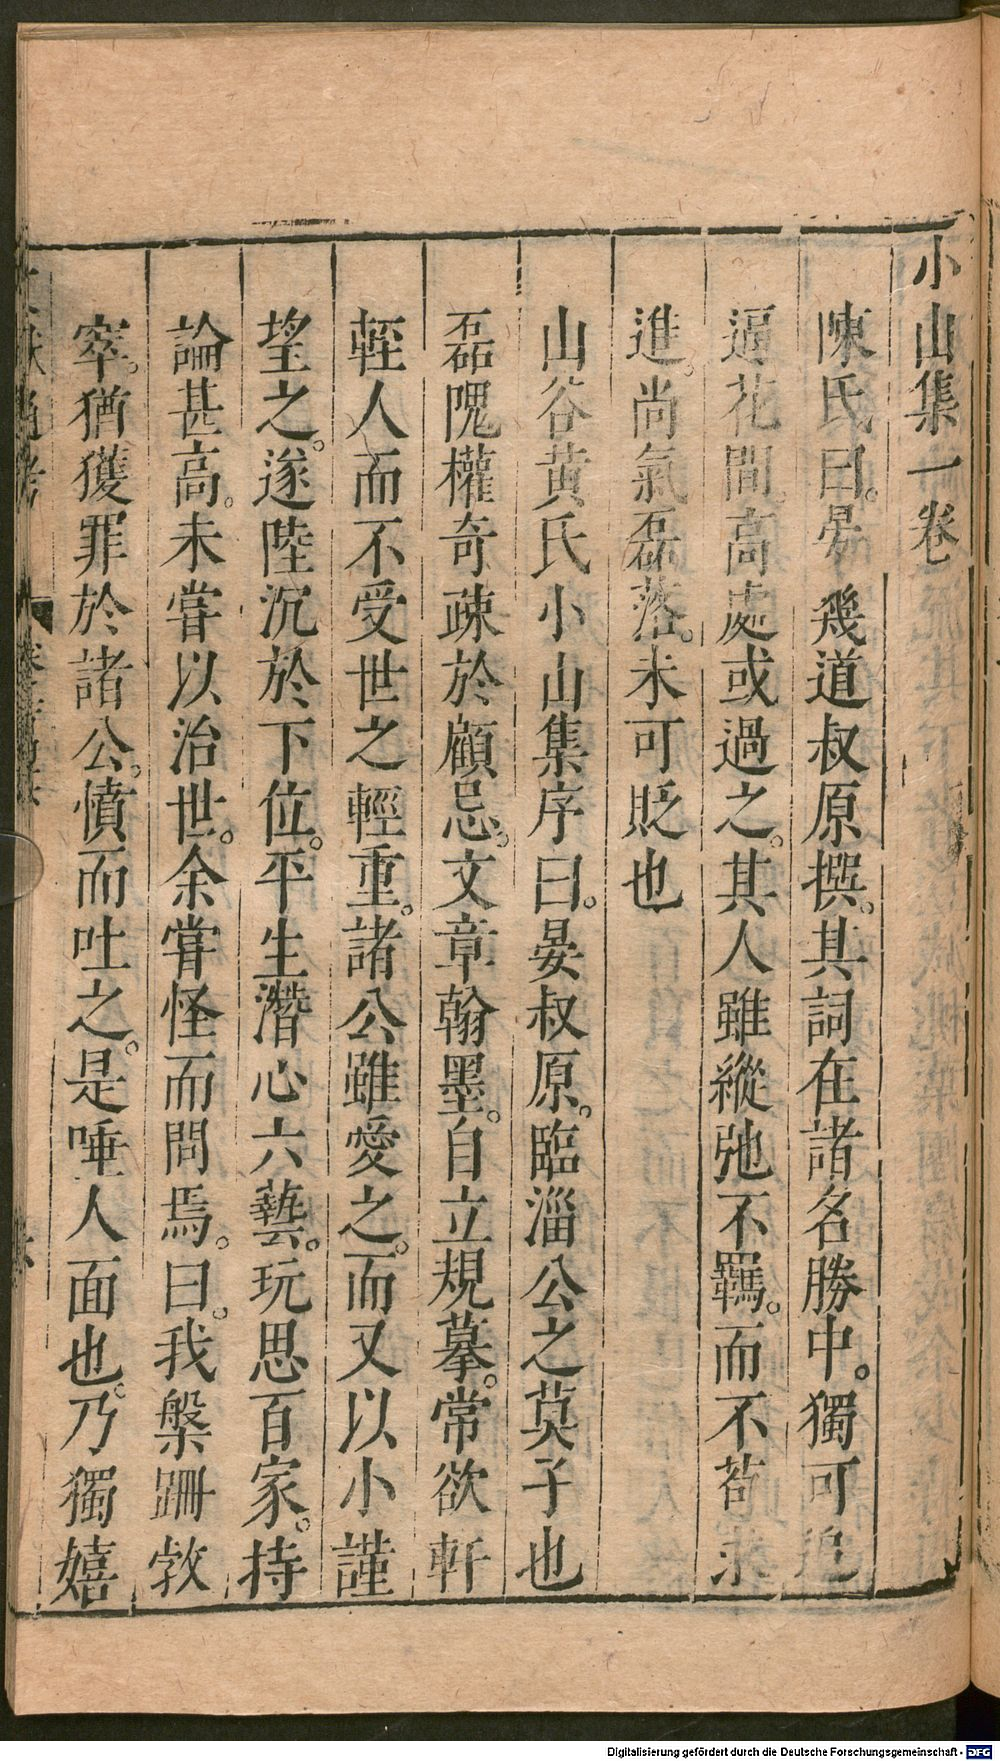 小山集一卷
陳氏曰。晏幾道叔原撰。其詞在諸名勝中。獨可追
逼花間。高處或過之。其人雖縱弛不羈。而不苟求
進。尚氣磊落。未可貶也
山谷黃氏小山集序曰。晏叔原。臨淄公之莫子也
磊隗權奇疎於顧忌。文章翰墨。自立規摹。常欲軒
輊人而不受世之輕重。諸公雖愛之。而又以小謹
望之。遂陸沉於下位。平生潛心六藝。玩思百家。持
論甚高。未嘗以治世。余嘗怪而問焉。曰。我槃跚敦
窣。猶獲罪於諸公。憤而吐之。是唾人面也。乃獨嬉
通考
Digitalisierung gefördert durch die Deutsche Forschungsgemeinschaft - DFG